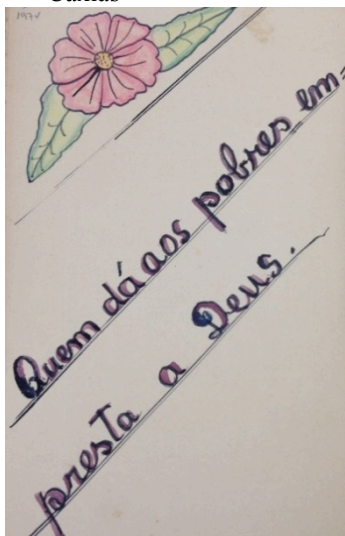 1974
Quem dá aos pobres em=
presta a Deus.